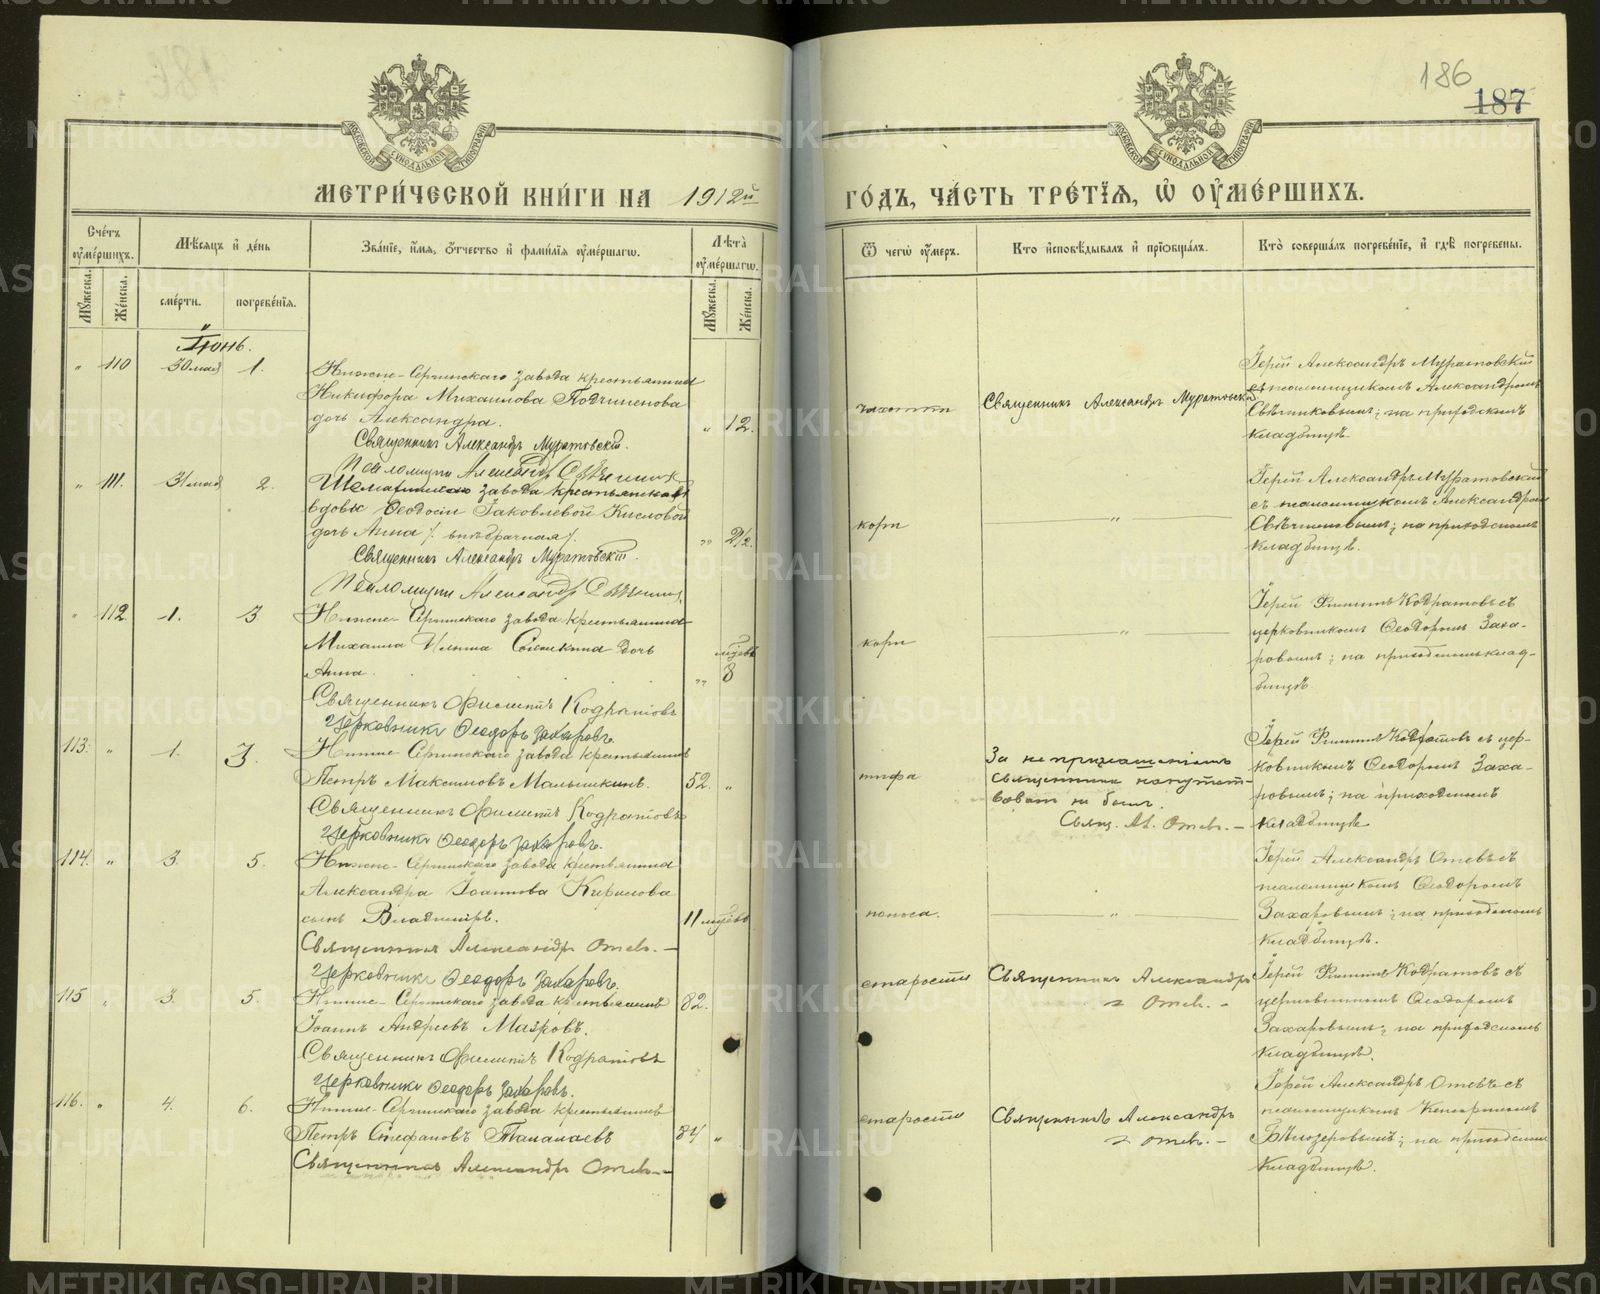 186
187
МОСКОВСКОЙ СѴНОДАЛЬНОЙ ТИПОГРАФІИ
МОСКОВСКОЙ СѴНОДАЛЬНОЙ ТИПОГРАФІИ
МЕТРИ́ЧЕСКОЙ КНИ́ГИ НА 1912й
ГО́ДЪ, ЧА́СТЬ ТРЕ́ТІЯ, Ѡ҆ ОУ҆МЕ́РШИХЪ.
Сче́тъ оу҆ме́ршихъ.
Мѣ́сяцъ и҆ де́нь
Зва́ніе, и҆́мя, ѻ҆́тчество и҆ фами́лія оу҆ме́ршагѡ.
Лѣ́та оу҆ме́ршагѡ.
Мꙋ́жеска.
Же́нска.
сме́рти.
погребе́нія.
Мꙋ́жеска.
Же́нска.
Ѿ чегѡ̀ оу҆́меръ.
Кто̀ и҆сповѣ́дывалъ и҆ прїѡбща́лъ.
Кто̀ соверша́лъ погребе́ніе, и҆ гдѣ̀ погребены̀.
Іюнь.
" 110 30 мая 1.
Нижне-Сергинскаго завода крестьянина
Никифора Михаилова Подчиненова
дочь Александра.
" 12.
Священникъ Александръ Муратовскій.
Псаломщикъ Александръ Свѣчников
чахотки
Священникъ Александръ Муратовскій
Іерей Александръ Муратовскій
съ псаломщикомъ Александромъ
Свѣчниковымъ; на приходскомъ
кладбищѣ.
" 111. 31 мая 2.
завода крестьянской
вдовы Ѳеодосіи Іаковлевой Кисловой
дочь Анна /. внѣбрачная /.
" 2½.
Священникъ Александръ Муратовскій.
Псаломщикъ Александръ Свѣчников
кори
"
Іерей Александръ Муратовскій
съ псаломщикомъ Александромъ
Свѣчниковымъ; на приходскомъ
кладбищѣ.
" 112. 1. 3
Нижне-Сергинскаго завода крестьянина
Михаила Ильина дочь
Анна.
" мѣсвъ 8
Священникъ Филиппъ Кодратовъ
Церковникъ Ѳеодоръ Захаровъ.
кори
"
Іерей Филиппъ Кодратовъ съ
церковникомъ Ѳеодоромъ Заха-
ровымъ; на приходскомъ клад-
бищѣ.
113. " 1. 3.
Нижне-Сергинскаго завода крестьянинъ
Петръ Максимовъ Малышкинъ.
52. "
Священникъ Филиппъ Кодратовъ
Церковникъ Ѳеодоръ Захаровъ.
тифа
За не приглашеніемъ
священника напутст-
вованъ не былъ.
Свящ. Ал. Отев. —
Іерей Филиппъ Кодратовъ съ цер-
ковникомъ Ѳеодоромъ Заха-
ровымъ; на приходскомъ
кладбищѣ
114. " 3. 5.
Нижне-Сергинскаго завода крестьянина
Александра Іоаннова Кирилова
сынъ Владиміръ.
11 мѣсвъ
Священникъ Александръ Отев. —
Церковникъ Ѳеодоръ Захаровъ.
поноса.
"
Іерей Александръ Отевъ съ
псаломщикомъ Ѳеодоромъ
Захаровымъ; на приходскомъ
кладбищѣ.
115 " 3. 5.
Нижне-Сергинскаго завода крестьянинъ
Іоаннъ Андреевъ Мазровъ.
82.
Священникъ Филиппъ Кодратовъ
Церковникъ Ѳеодоръ Захаровъ.
старости
Священникъ Александръ
Отев. —
Іерей Филиппъ Кодратовъ съ
церковникомъ Ѳеодоромъ
Захаровымъ; на приходскомъ
кладбищѣ.
116. " 4. 6.
Нижне-Сергинскаго завода крестьянинъ
Петръ Стефановъ Тапалаевъ
84 "
Священникъ Александръ Отев. —
старости
Священникъ Александръ
Отев. —
Іерей Александръ Отевъ съ
псаломщикомъ
Бѣлозеровымъ; на приходском
кладбищѣ.
METRIKI.GASO-URAL.RU